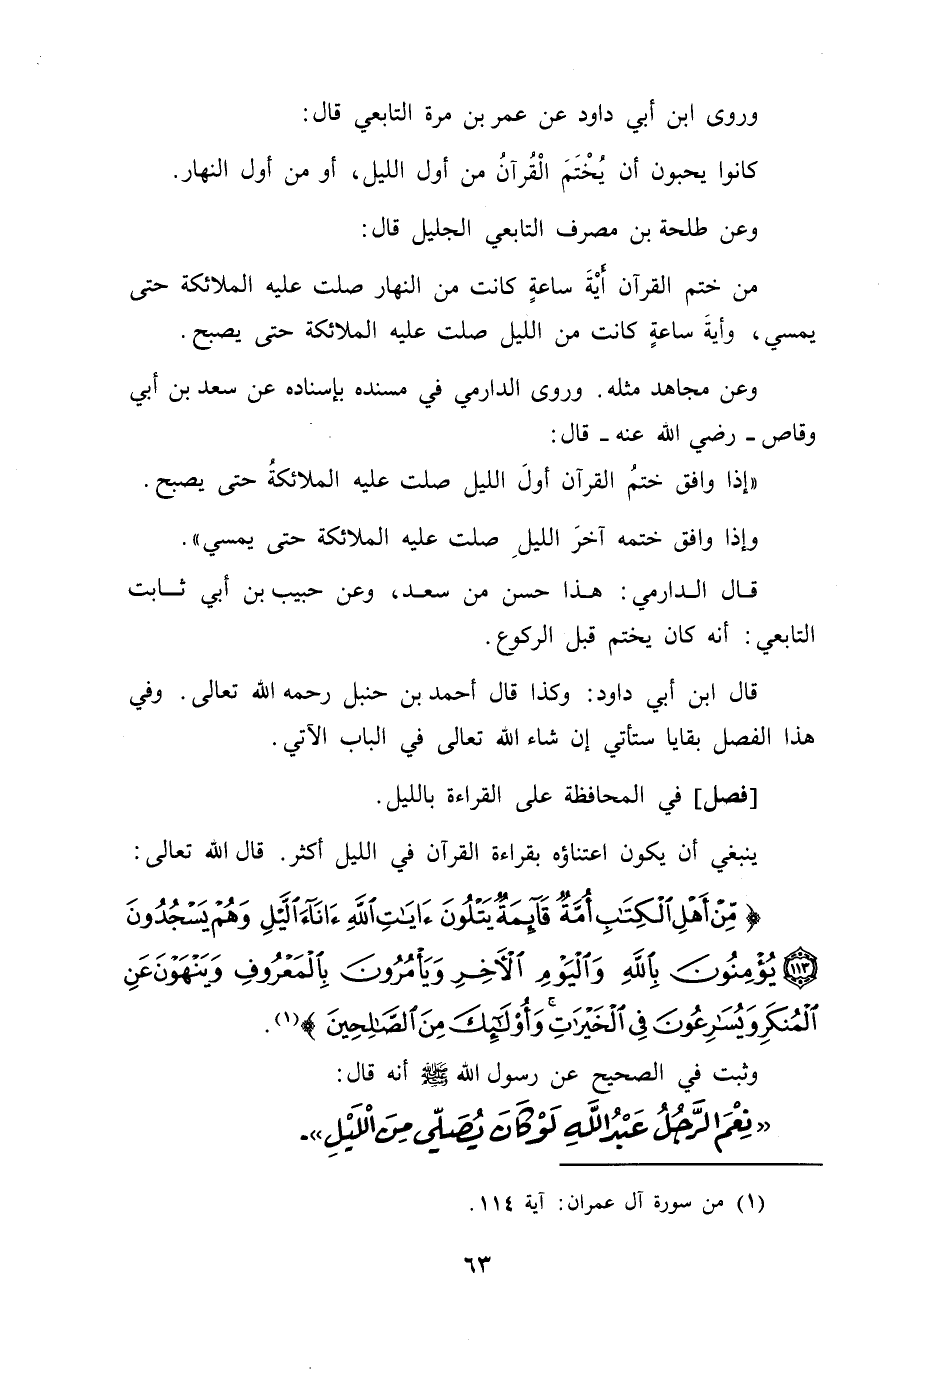 وروى ابن أبي داود عن عمر بن مرة التابعي قال:
كانوا يحبون أن يُخْتَمَ الْقُرآنُ من أول الليل، أو من أول النهار.
وعن طلحة بن مصرف التابعي الجليل قال:
من ختم القرآن أَيَّةَ ساعةٍ كانت من النهار صلت عليه الملائكة حتى
يمسي، وأيةَ ساعةٍ كانت من الليل صلت عليه الملائكة حتى يصبح.
وعن مجاهد مثله. وروى الدارمي في مسنده بإسناده عن سعد بن أبي
وقاص ـ رضي الله عنه ـ قال:
«إذا وافق ختمُ القرآن أولَ الليل صلت عليه الملائكةُ حتى يصبح.
وإذا وافق ختمه آخرَ الليلِ صلت عليه الملائكة حتى يمسي».
قال الدارمي: هذا حسن من سعد، وعن حبيب بن أبي ثابت
التابعي: أنه كان يختم قبل الركوع.
قال ابن أبي داود: وكذا قال أحمد بن حنبل رحمه الله تعالى. وفي
هذا الفصل بقايا ستأتي إن شاء الله تعالى في الباب الآتي.
[فصل] في المحافظة على القراءة بالليل.
ينبغي أن يكون اعتناؤه بقراءة القرآن في الليل أكثر. قال الله تعالى:
﴿ مِّنْ أَهْلِ ٱلْكِتَٰبِ أُمَّةٌ قَآئِمَةٌ يَتْلُونَ ءَايَٰتِ ٱللَّهِ ءَانَآءَ ٱلَّيْلِ وَهُمْ يَسْجُدُونَ
(١١٣) يُؤْمِنُونَ بِٱللَّهِ وَٱلْيَوْمِ ٱلْأَخِرِ وَيَأْمُرُونَ بِٱلْمَعْرُوفِ وَيَنْهَوْنَ عَنِ
ٱلْمُنكَرِ وَيُسَٰرِعُونَ فِي ٱلْخَيْرَٰتِۖ وَأُوْلَٰٓئِكَ مِنَ ٱلصَّٰلِحِينَ ﴾(١).
وثبت في الصحيح عن رسول الله ﷺ أنه قال:
«نِعْمَ الرَّجُلُ عَبْدُ اللَّهِ لَوْ كَانَ يُصَلِّي مِنَ الْلَيْلِ».
(١) من سورة آل عمران: آية ١١٤.
٦٣